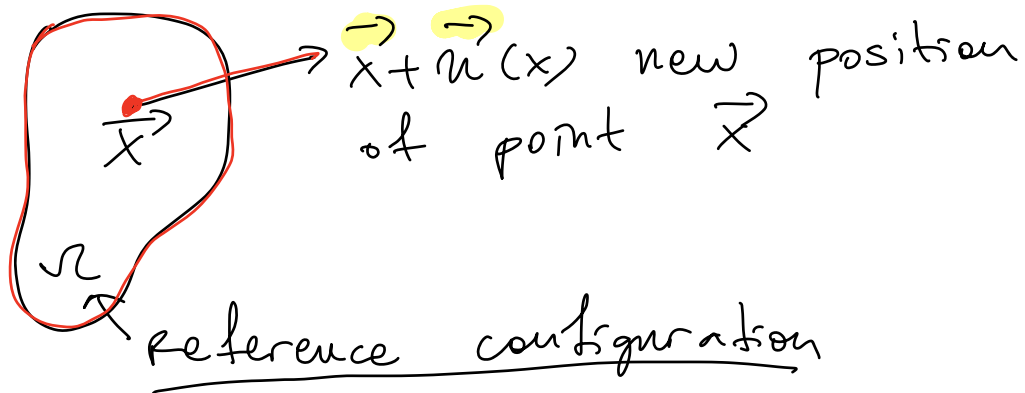 x⃗ + u⃗ (x) new position
of point x⃗
x⃗
Ω
Reference configuration